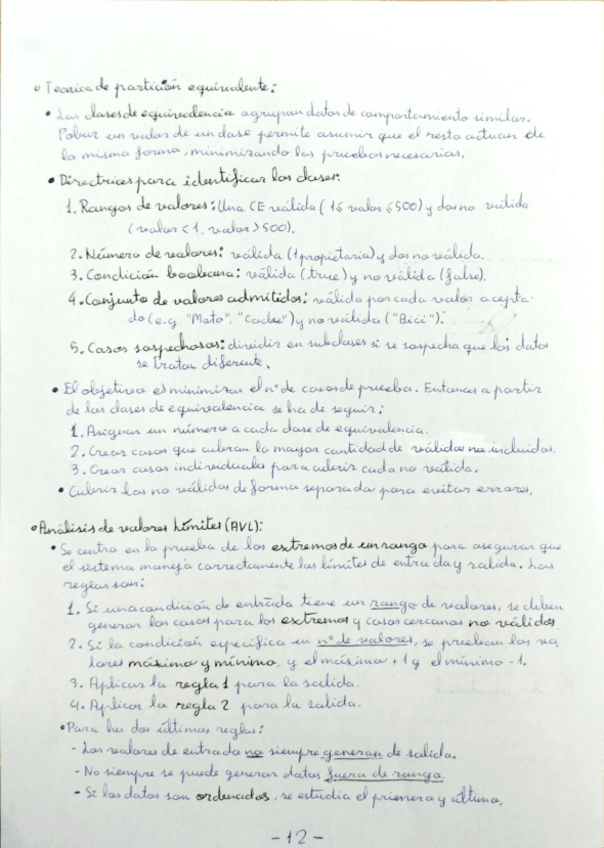 • Técnica de partición equivalente:
• Las clases de equivalencia agrupan datos de comportamiento similar.
Probar un valor de un clase permite asumir que el resto actúan de
la misma forma, minimizando las pruebas necesarias.
• Directrices para identificar las clases:
1. Rangos de valores: Una CE válida (1 ≤ valor ≤ 500) y dos no válida
(valor < 1, valor > 500).
2. Número de valores: válida (1 propietario) y dos no válida.
3. Condición booleana: válida (true) y no válida (false).
4. Conjunto de valores admitidos: válida por cada valor acepta-
do (e.g. "Moto", "Coche") y no válida ("Bici").
5. Casos sospechosos: dividir en subclases si se sospecha que los datos
se tratan diferente.
• El objetivo es minimizar el nº de casos de prueba. Entonces a partir
de las clases de equivalencia se ha de seguir:
1. Asignar un número a cada clase de equivalencia.
2. Crear casos que cubran la mayor cantidad de válidas no incluidas.
3. Crear casos individuales para cubrir cada no válida.
• Cubrir las no válidas de forma separada para evitar errores.
• Análisis de valores límites (AVL):
• Se centra en la prueba de los extremos de un rango para asegurar que
el sistema maneja correctamente los límites de entrada y salida. Las
reglas son:
1. Si una condición de entrada tiene un rango de valores, se deben
generar los casos para los extremos y casos cercanos no válidos.
2. Si la condición especifica un nº de valores, se prueban los va
lores máximo y mínimo, y el máximo + 1 y el mínimo - 1.
3. Aplicar la regla 1 para la salida.
4. Aplicar la regla 2 para la salida.
• Para las dos últimas reglas:
- Los valores de entrada no siempre generan de salida.
- No siempre se puede generar datos fuera de rango.
- Si los datos son ordenados, se estudia el primero y último.
- 12 -